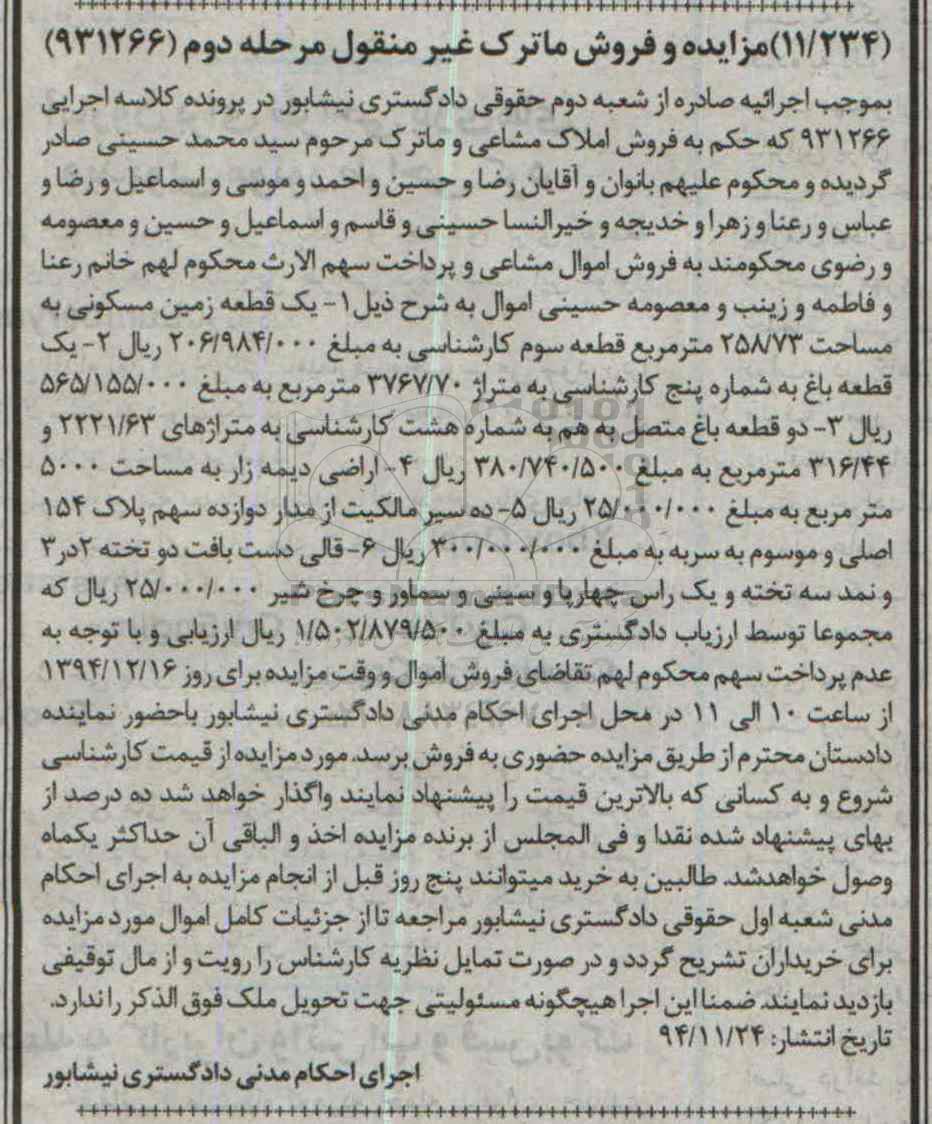 (۱۱/۲۳۴)مزایده و فروش ماترک غیر منقول مرحله دوم (۹۳۱۲۶۶)
بموجب اجرائیه صادره از شعبه دوم حقوقی دادگستری نیشابور در پرونده کلاسه اجرایی
۹۳۱۲۶۶ که حکم به فروش املاک مشاعی و ماترک مرحوم سید محمد حسینی صادر
گردیده و محکوم علیهم بانوان و آقایان رضا و حسین و احمد و موسی و اسماعیل و رضا و
عباس و رعنا و زهرا و خدیجه و خیرالنسا حسینی و قاسم و اسماعیل و حسین و معصومه
و رضوی محکومند به فروش اموال مشاعی و پرداخت سهم الارث محکوم لهم خانم رعنا
و فاطمه و زینب و معصومه حسینی اموال به شرح ذیل ۱- یک قطعه زمین مسکونی به
مساحت ۲۵۸/۷۳ مترمربع قطعه سوم کارشناسی به مبلغ ۲۰۶/۹۸۴/۰۰۰ ریال ۲- یک
قطعه باغ به شماره پنج کارشناسی به متراژ ۳۷۶۷/۷۰ مترمربع به مبلغ ۵۶۵/۱۵۵/۰۰۰
ریال ۳- دو قطعه باغ متصل به هم به شماره هشت کارشناسی به متراژهای ۲۲۲۱/۶۳ و
۳۱۶/۴۴ مترمربع به مبلغ ۳۸۰/۷۴۰/۵۰۰ ریال ۴- اراضی دیمه زار به مساحت ۵۰۰۰
متر مربع به مبلغ ۲۵/۰۰۰/۰۰۰ ریال ۵- ده سیر مالکیت از مدار دوازده سهم پلاک ۱۵۴
اصلی و موسوم به سربه به مبلغ ۳۰۰/۰۰۰/۰۰۰ ریال ۶- قالی دست بافت دو تخته ۲در۳
و نمد سه تخته و یک راس چهارپا و سینی و سماور و چرخ شیر ۲۵/۰۰۰/۰۰۰ ریال که
مجموعا توسط ارزیاب دادگستری به مبلغ ۱/۵۰۲/۸۷۹/۵۰۰ ریال ارزیابی و با توجه به
عدم پرداخت سهم محکوم لهم تقاضای فروش اموال و وقت مزایده برای روز ۱۳۹۴/۱۲/۱۶
از ساعت ۱۰ الی ۱۱ در محل اجرای احکام مدنی دادگستری نیشابور باحضور نماینده
دادستان محترم از طریق مزایده حضوری به فروش برسد. مورد مزایده از قیمت کارشناسی
شروع و به کسانی که بالاترین قیمت را پیشنهاد نمایند واگذار خواهد شد ده درصد از
بهای پیشنهاد شده نقدا و فی المجلس از برنده مزایده اخذ و الباقی آن حداکثر یکماه
وصول خواهدشد. طالبین به خرید میتوانند پنج روز قبل از انجام مزایده به اجرای احکام
مدنی شعبه اول حقوقی دادگستری نیشابور مراجعه تا از جزئیات کامل اموال مورد مزایده
برای خریداران تشریح گردد و در صورت تمایل نظریه کارشناس را رویت و از مال توقیفی
بازدید نمایند. ضمنا این اجرا هیچگونه مسئولیتی جهت تحویل ملک فوق الذکر را ندارد.
تاریخ انتشار: ۹۴/۱۱/۲۴
اجرای احکام مدنی دادگستری نیشابور